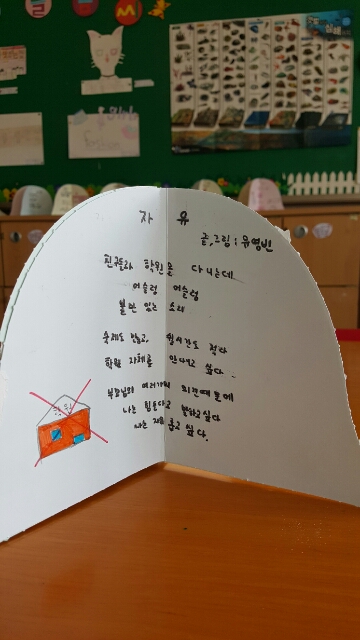 자유
글,그림 : 유영빈
친구들과 학원을 다니는데
어슬렁 어슬렁
불만 있는 소리
숙제도 많고, 쉴시간도 적다
학원 자체를 안다니고 싶다.
부모님의 여러가지 의견때문에
나는 힘들다고 말하고싶다
나는 자유롭고 싶다.